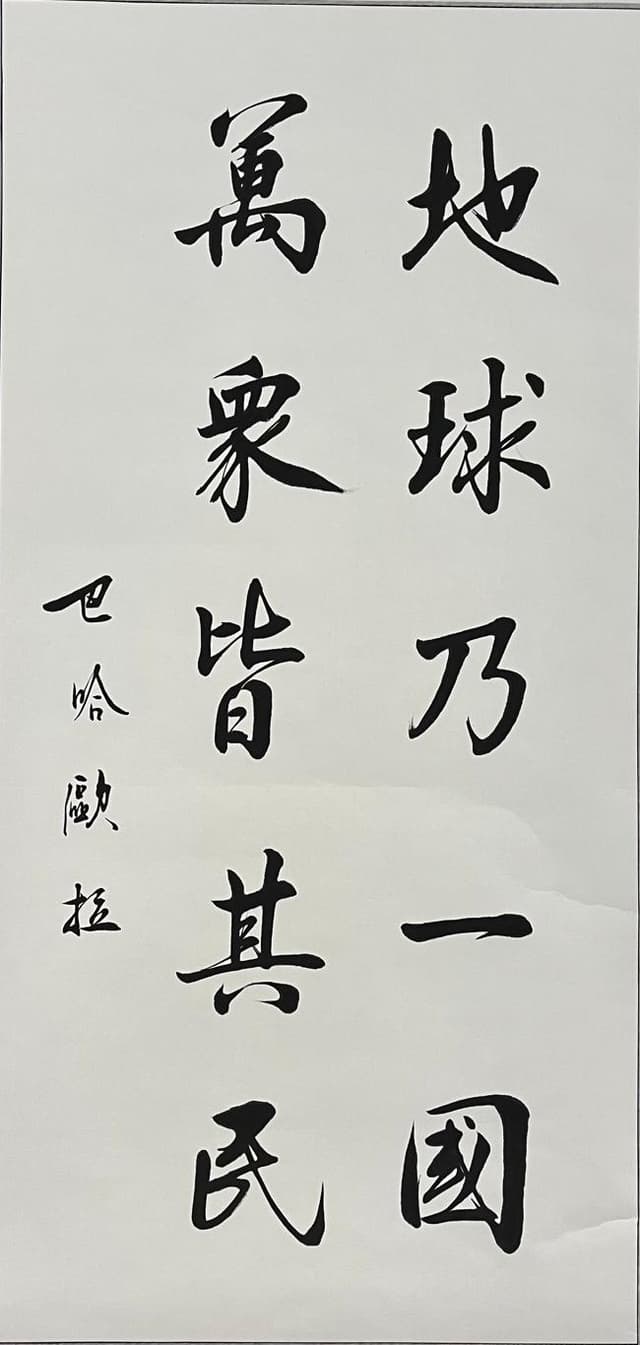 地球乃一國
萬衆皆其民
巴哈歐拉